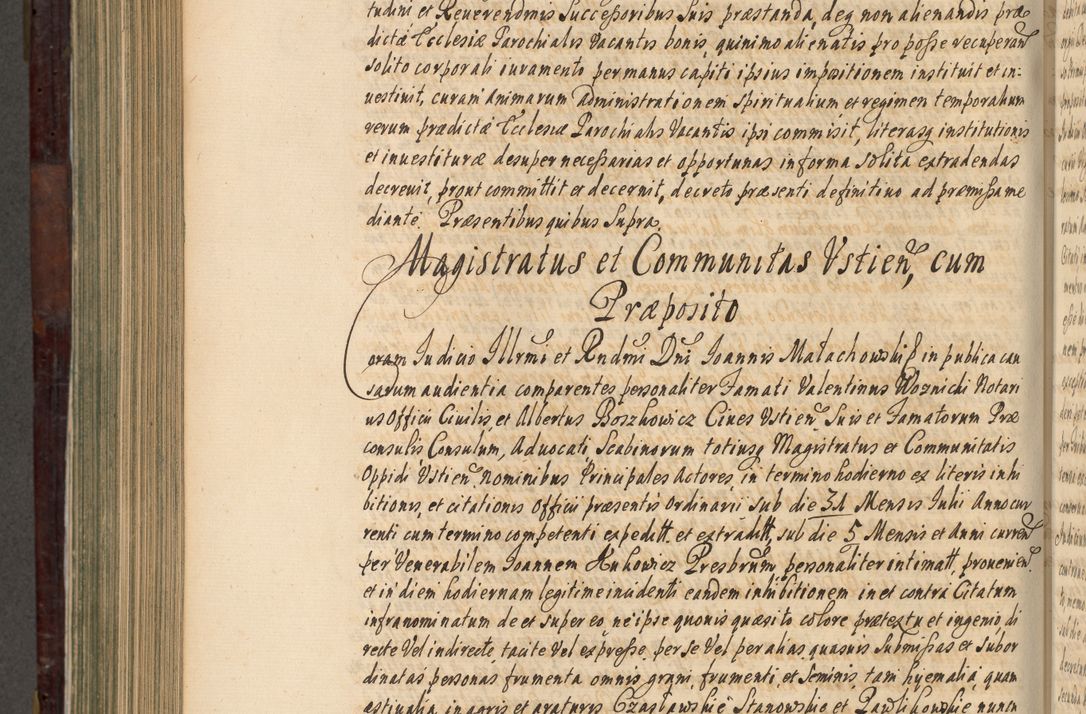 tudini et Reuerendmis Successoribus Suis præstanda, deq non alienandis præ
dictæ Ecclesiæ Parochialis Vacantis bonis, quinimo alienatis pro posse recuperan
solito corporali iuramento per manus capiti ipsius impositionem instituit et in:
uestiuit, curam Animarum Administrationem Spiritualium et regimen temporalium
rerum prædictæ Ecclesiæ Parochialis Vacantis ipsi commisit, literasq institutionis
et inuestituræ desuper necessarias et opportunas in forma solita extradendas
decreuit, prout committit et decernit, decreto præsenti definitiuo ad præmissa me
diante. Præsentibus quibus Supra.
Magistratus et Communitas Vstien, cum
Præposito
Coram Iudicio Illrmi et Rndmi Dni Ioannis Małachowski in publica cau
sarum audientia comparentes personaliter Famati Valentinus Woznicki Notari
us Officii Ciuilis, et Albertus Boszkowicz Ciues Vstien Suis et Famatorum Præ
consulis Consulum, Aduocati, Scabinorum totiusq Magistratus et Communitatis
Oppidi Vstien, Nominibus Principales Actores, in termino hodierno ex literis inhi
bitionis, et citationis Officii præsentis Ordinarii sub die 31 Mensis Iulii Anno cur
renti cum termino competenti expeditt. et extraditt, sub die 5 Mensis et Anni curren
per Venerabilem Ioannem Presbrum personaliter intimatt, prouenien.
et in diem hodiernam legitime incidenti eandem inhibitionem in et contra Citatum
infranominatum de et super eo, ne ipse quouis quæsito colore prætextu et ingenio, di
recte Vel indirecte, tacite Vel expresse, per se Vel per alias quasuis Submissas et Subor
dinatas personas frumenta omnis grani, frumenti, et Seminis, tam hyemalia, quam
æstiualia, in agris et araturis Czasławskie Stanowskie et Pawlikowskie nunc